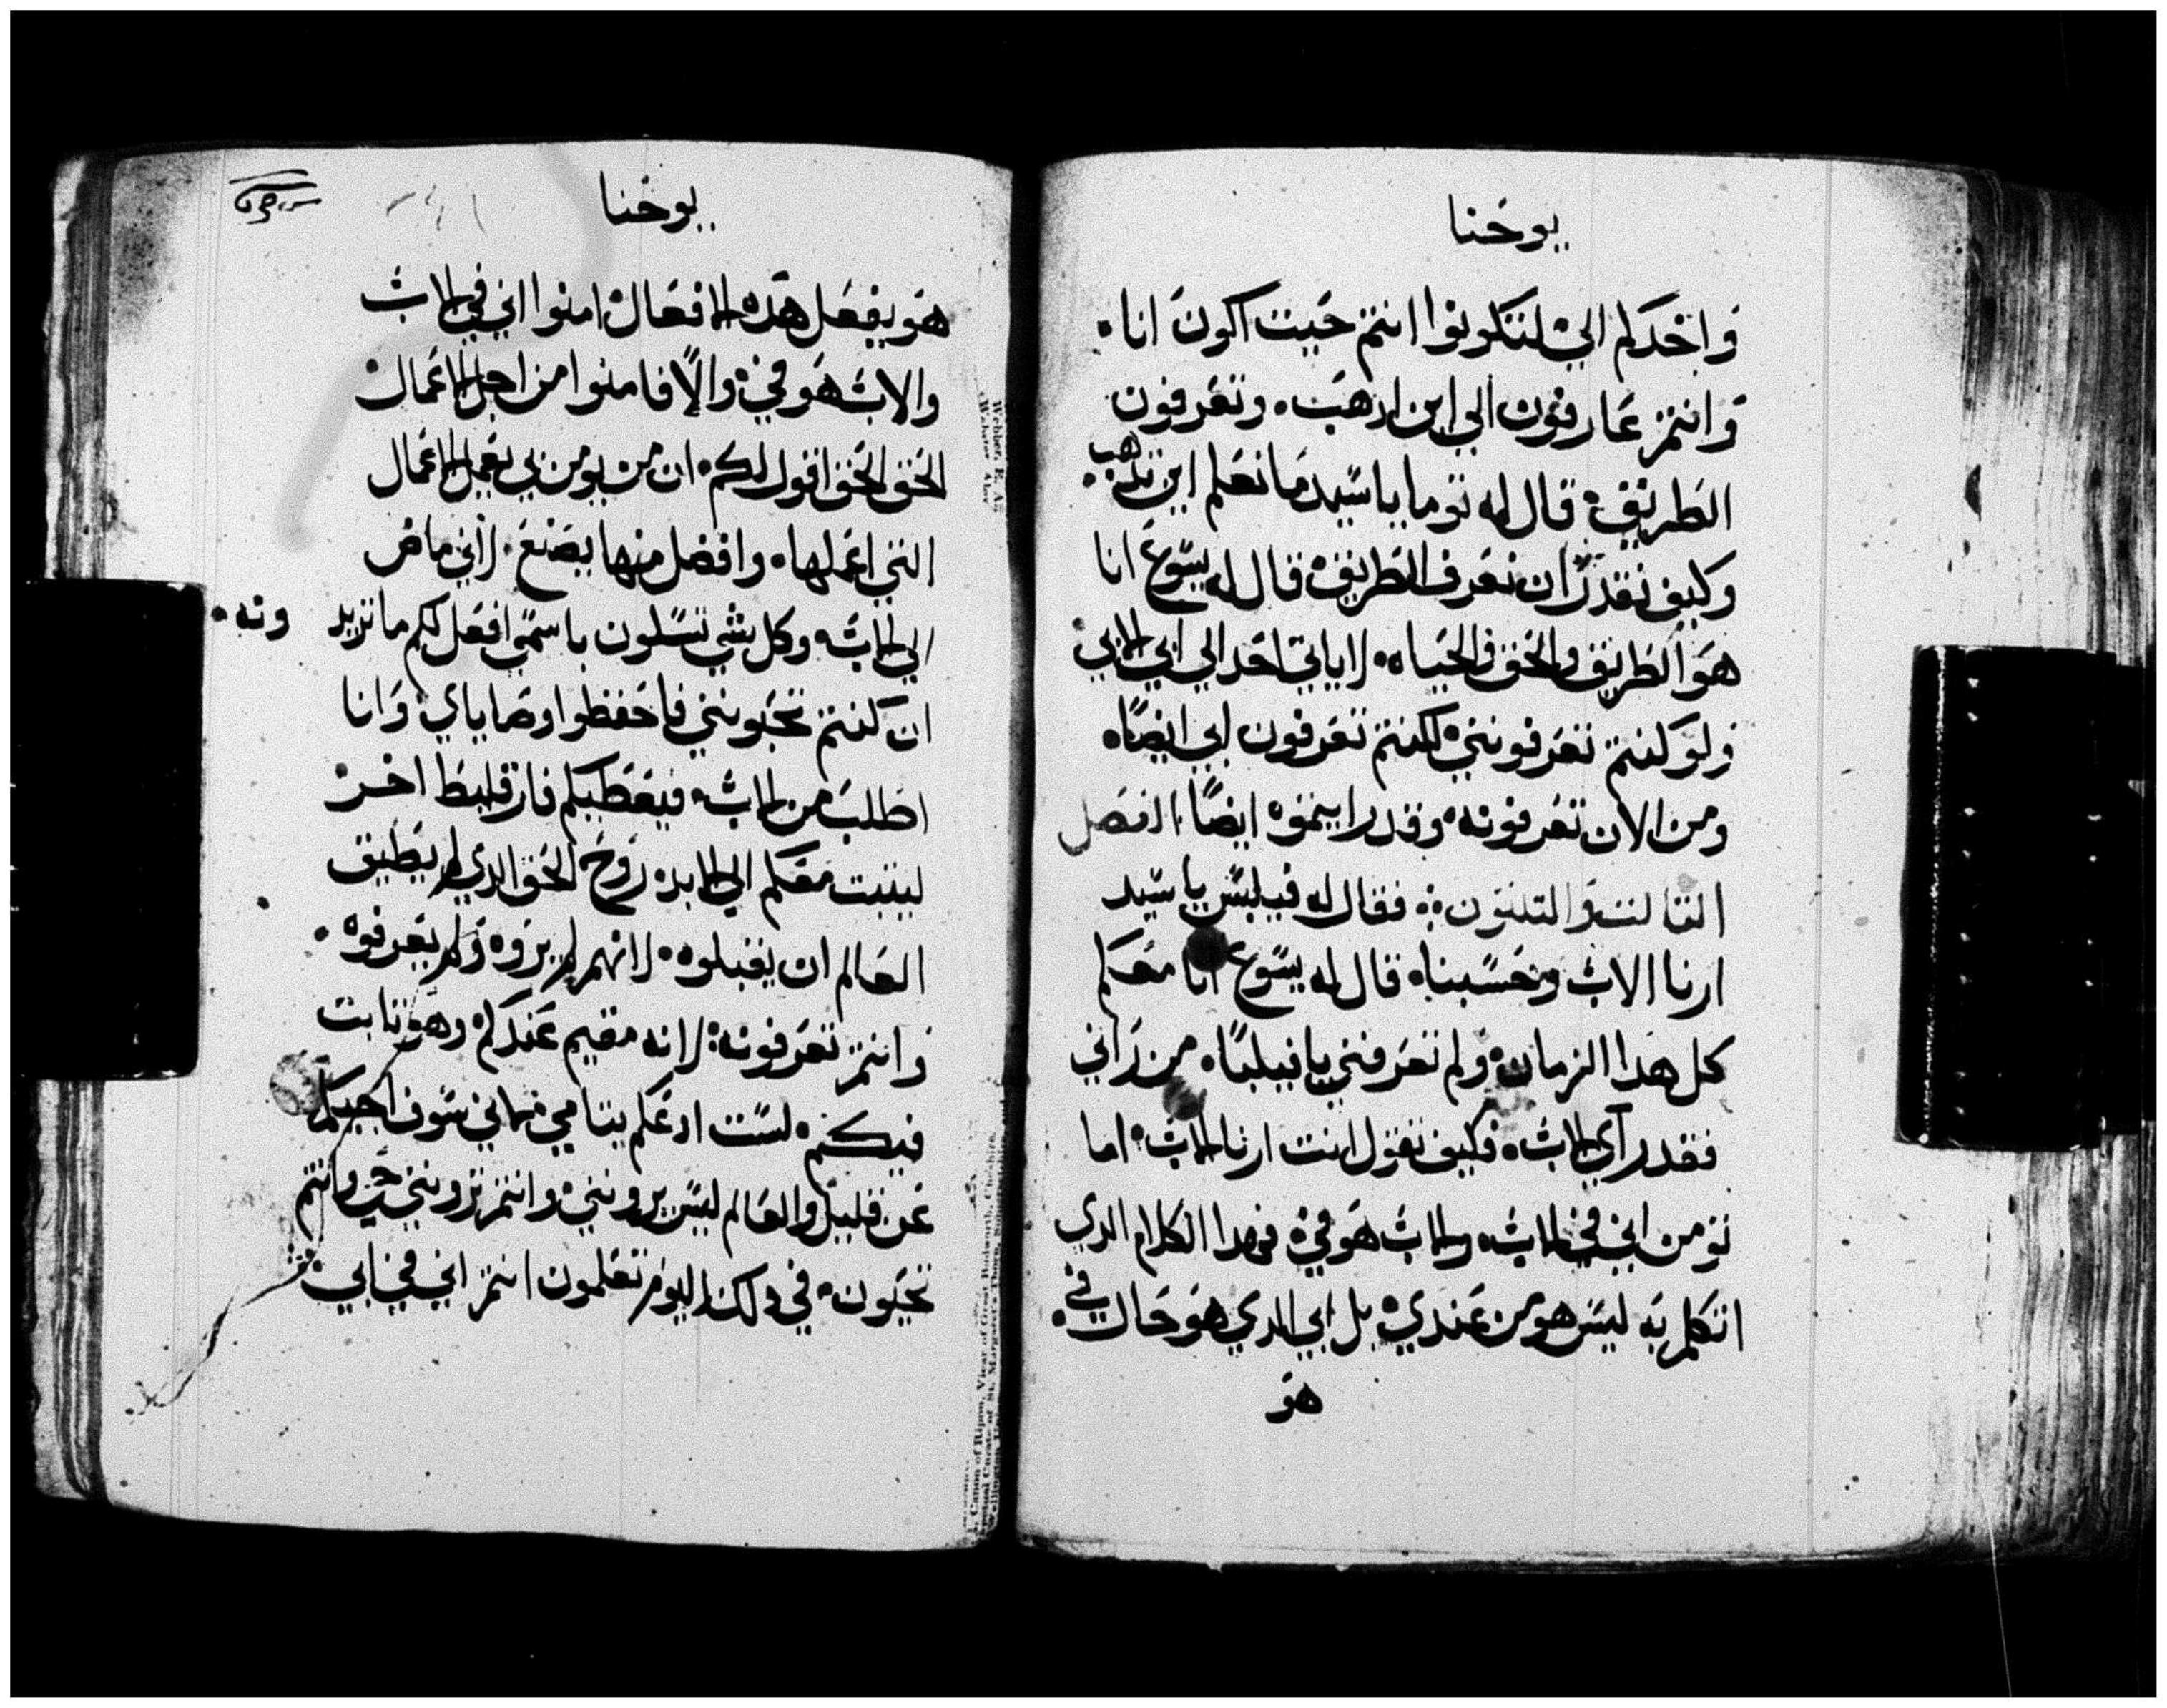 يوحنا
واخدكم الي لتكونوا انتم حيت اكون انا.
وانتم عارفون الي اين ادهب. وتعرفون
الطريق. قال له توما يا سيد ما نعلم اين تدهب.
وكيف نقدر ان نعرف الطريق. قال له يسوع انا
هو الطريق والحق والحياه. لا ياتي احد الي ابي الا بي
ولو كنتم تعرفونني لكنتم تعرفون ابي ايضًا.
ومن الان تعرفونه. وقد رايتموه ايضًا. الفصل
التالت والتلتون. فقال له فيلبس يا سيد
ارنا الاب وحسبنا. قال له يسوع انا معكم
كل هدا الزمان. ولم تعرفني يا فيلبا. من راني
فقد رآي الاب. فكيف تقول انت ارنا الاب. اما
تومن اني في الاب. والاب هو في. فهدا الكلام الدي
اتكلم به ليس هو من عندي. بل ابي الدي هو حال في.
هو
يوحنا
هو يفعل هده الافعال امنوا اني في الاب
والاب هو في. والًا فامنوا من اجل الاعمال
الحق الحق اقول لكم. ان من يومن بي يعمل الاعمال
التي اعملها. وافضل منها يصنع. لاني ماض
الي الاب. وكل شي تسلون باسمي افعل لكم ما تريد ونه.
ان كنتم تحبونني فاحفظوا وصاياي. وانا
اطلب من الاب. فيعطيكم فارقليط اخر
ليتبت معكم الي الابد. روح الحق الدي لم يطيق
العالم ان يقبلوه. لانهم لم يروه ولم يعرفوه.
وانتم تعرفونه. لانه مقيم عندكم وهو تابت
فيكم. لست ادعكم يتامي. لاني سوف اجيكم
عن قليل والعالم ليس يرونني. وانتم ترونني حي وانتم
تحيون. في دلك اليوم تعلمون انتم اني في ابي.